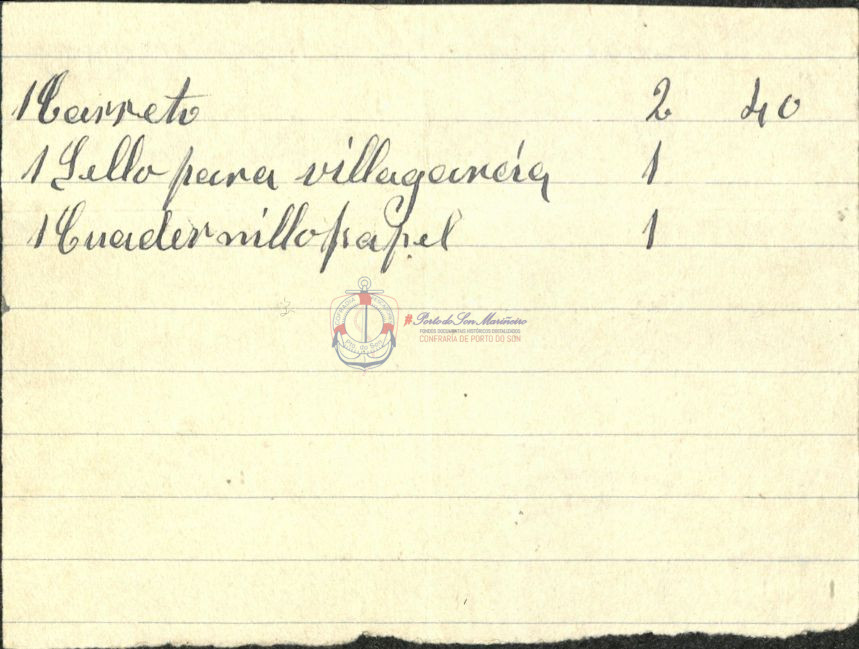 1 Carreto 2 40
1 Sello para villagarcía 1
1 Cuadernillo papel 1
#Porto do Son Mariñeiro
FONDOS DOCUMENTAIS HISTÓRICOS DIXITALIZADOS
CONFRARÍA DE PORTO DO SON